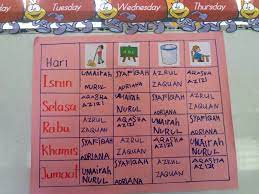 day Tuesday Wednesday Thursday
Hari
Isnin UMAIRAH SYAFIQAH AZRUL AQASHA
NURUL ADRIANA ZAQUAN AZIZI
Selasa AQASHA UMAIRAH SYAFIQAH AZRUL
AZIZI NURUL ADRIANA ZAQUAN
Rabu AZRUL AQASHA UMAIRAH SYAFIQAH
ZAQUAN AZIZI NURUL ADRIANA
Khamis SYAFIQAH AZRUL AQASHA UMAIRAH
ADRIANA ZAQUAN AZIZI NURUL
Jumaat UMAIRAH SYAFIQAH AZRUL AQASHA
NURUL ADRIANA ZAQUAN AZIZI